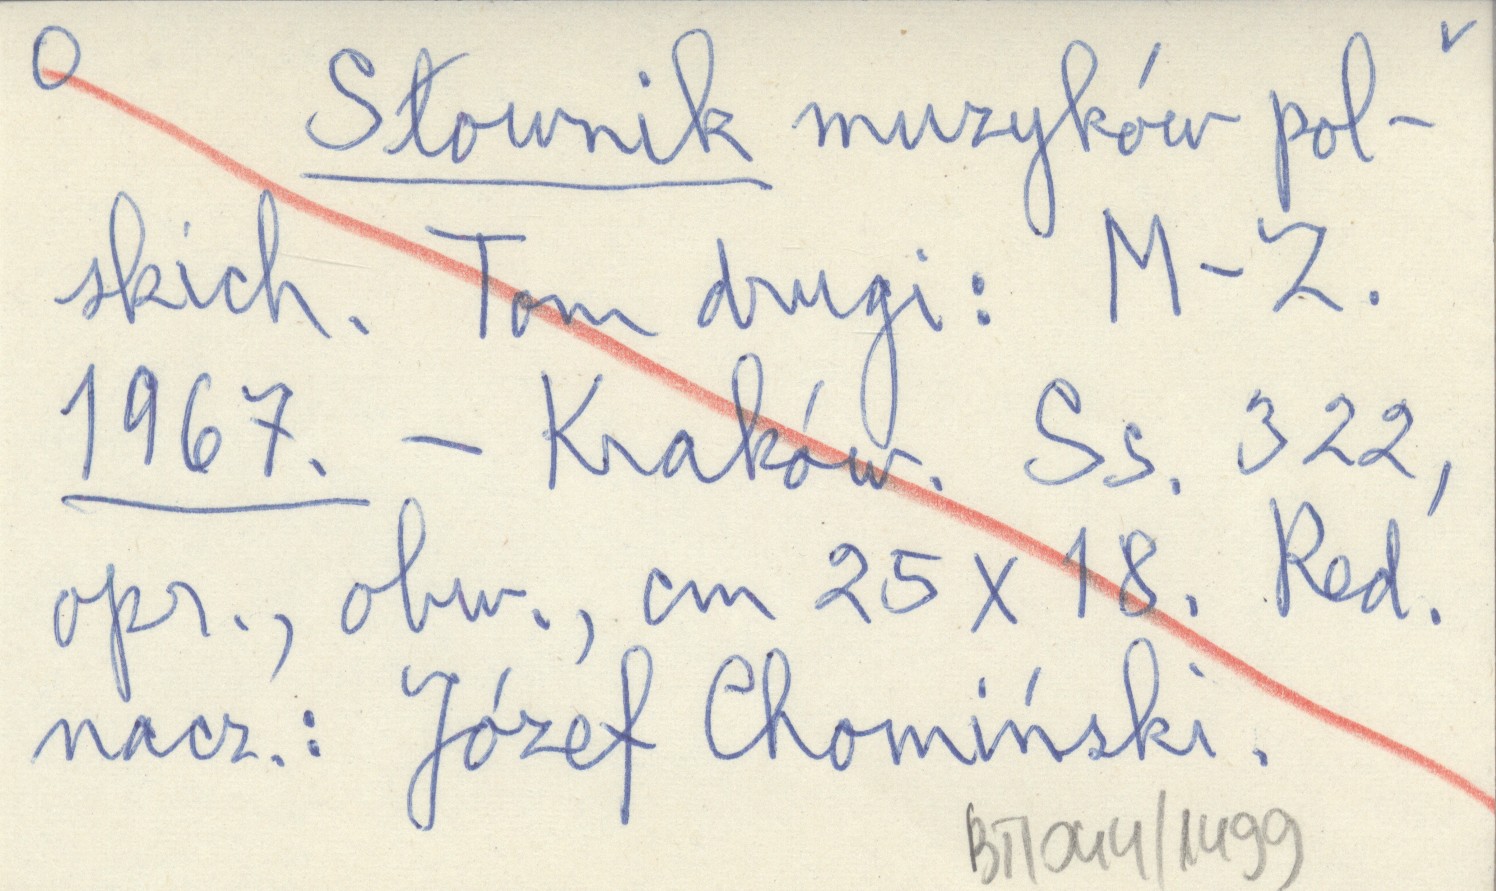 O Słownik muzyków pol-
skich. Tom drugi: M-Z.
1967. - Kraków. Ss. 322,
opr., obw., cm 25 x 18. Red.
nacz.: Józef Chomiński.